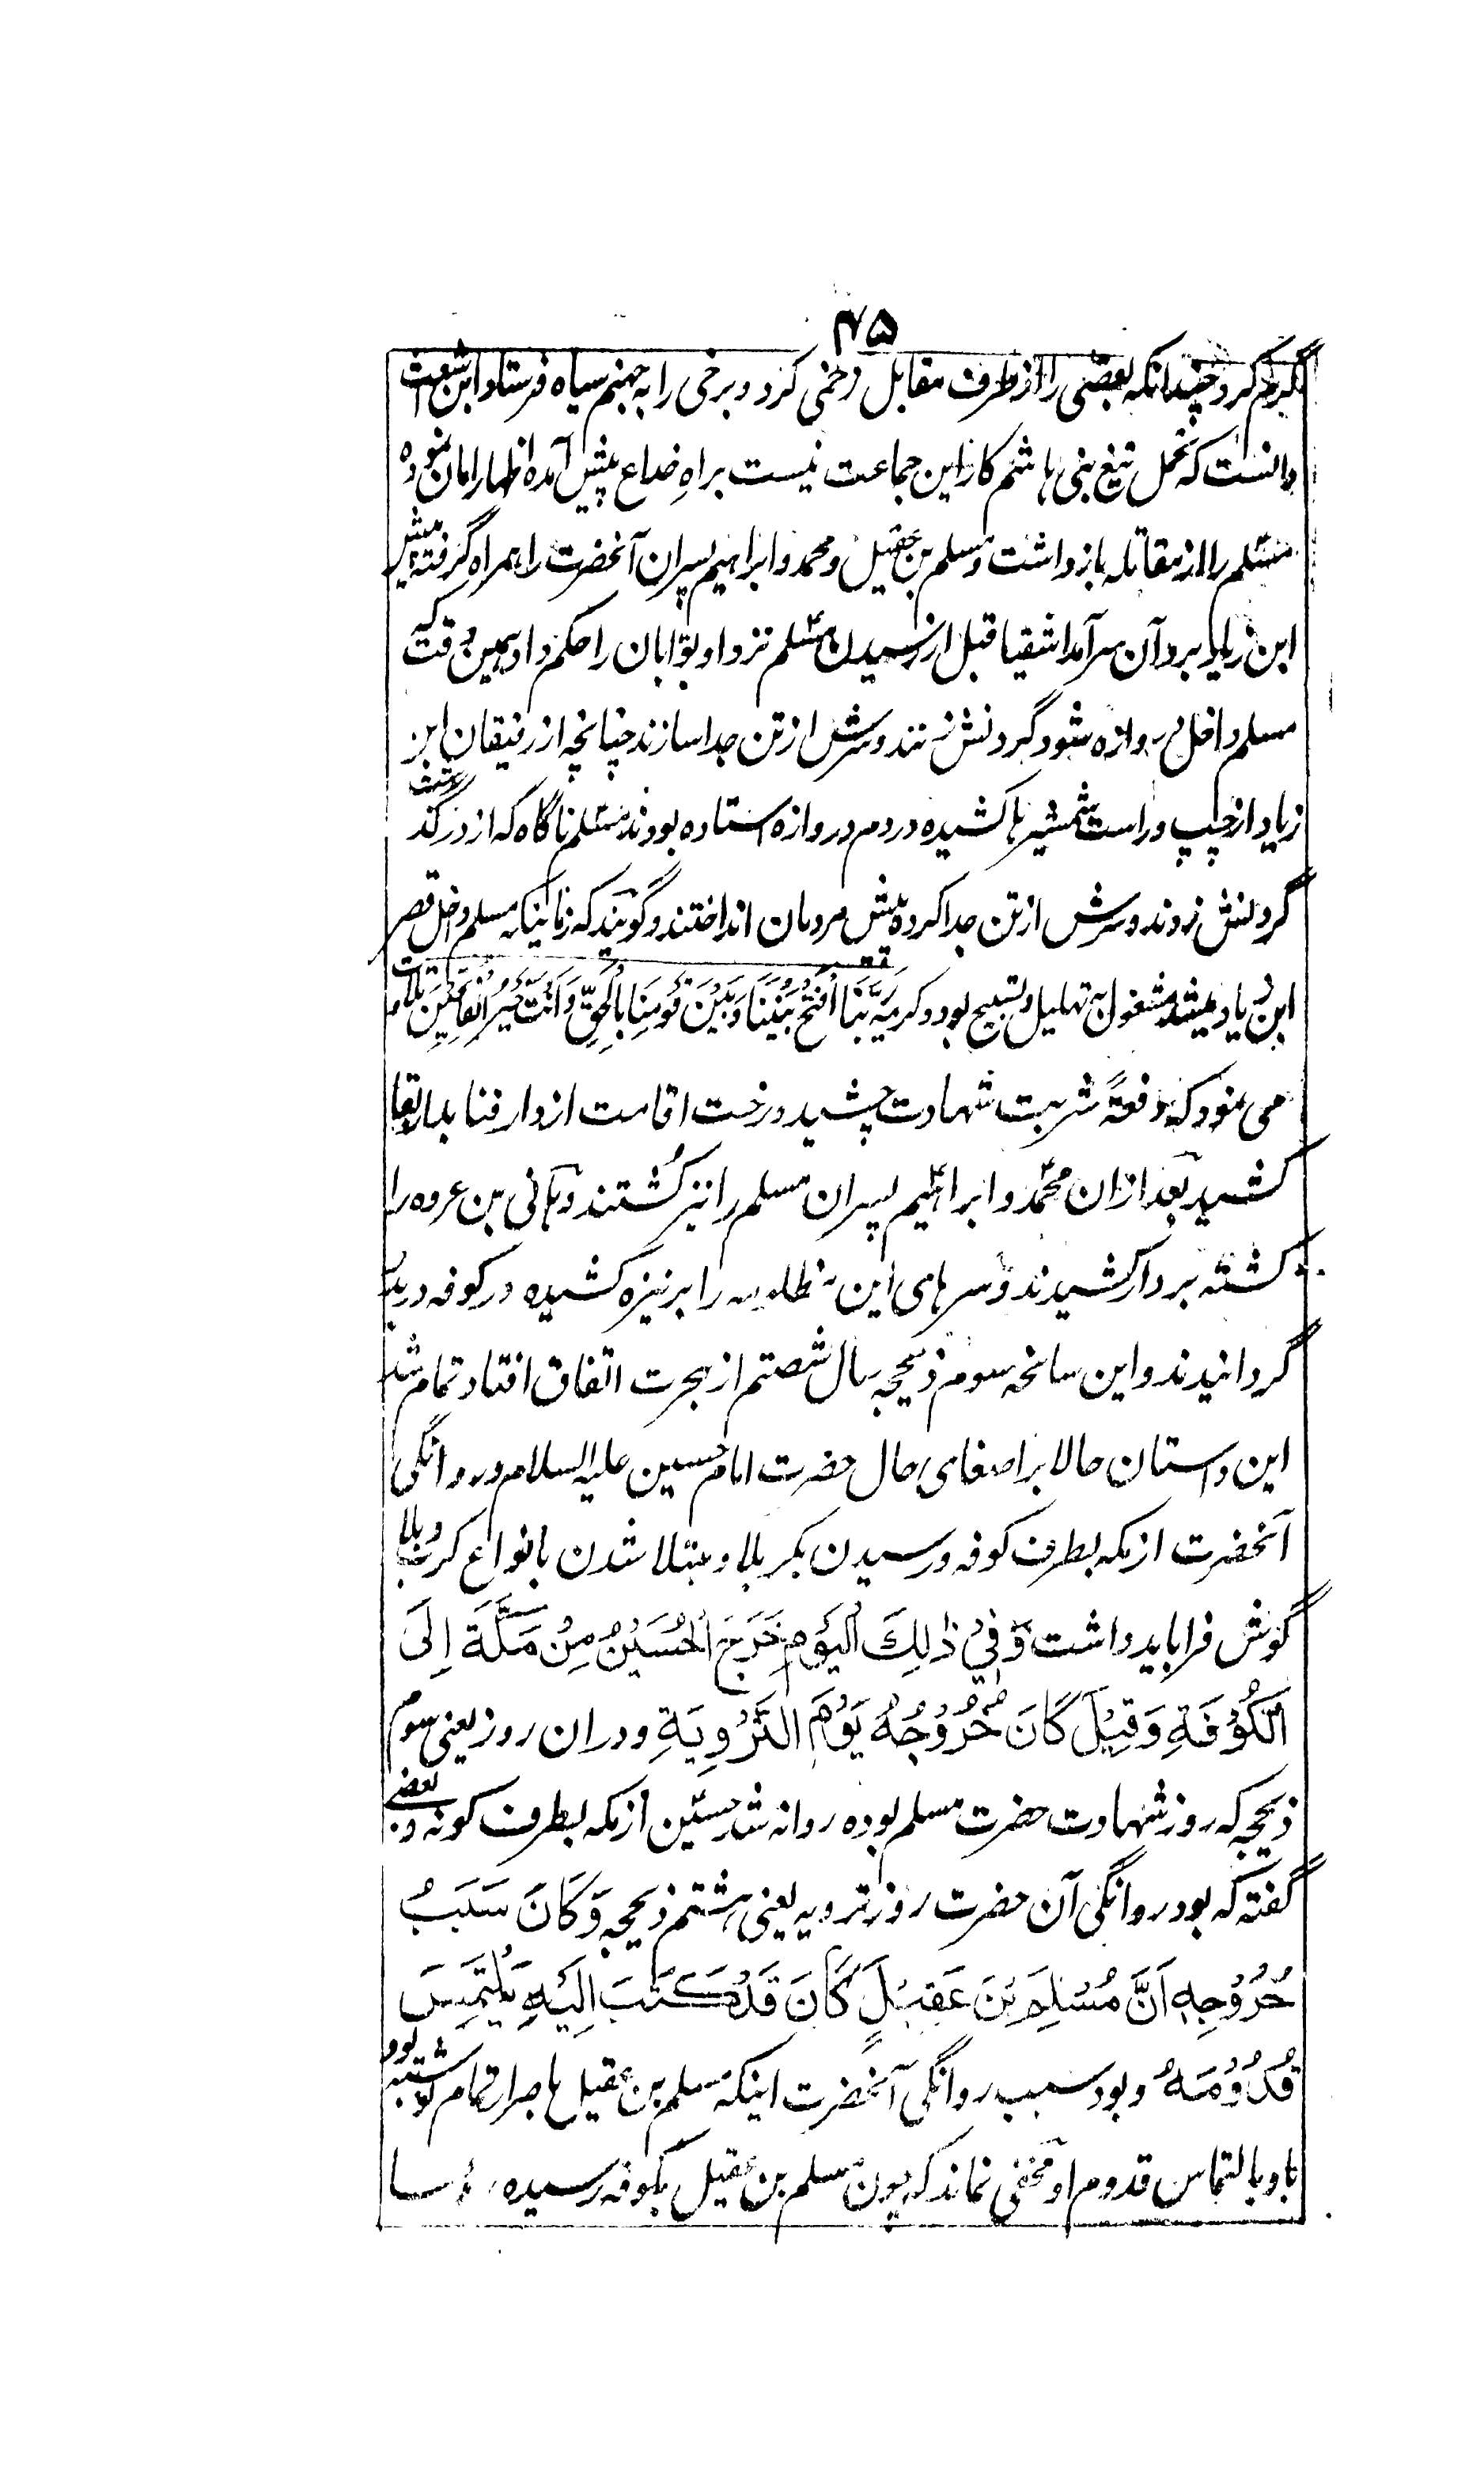 ۴۵
گرم کرد چندانکه بعضی را از طرف مقابل زخمی کرد و برخی را به جهنم سیاه فرستاد ابن اشعث
دانست که تحمل تیغ بنی هاشم کار این جماعت نیست براه خداع پیش آمده اظهار امان نموده
مسلم را از مقاتله باز داشت و مسلم بن عقیل و محمد و ابراهیم پسران آنحضرت را همراه گرفته پیش
ابن زیاد برد آن سرآمد اشقیا قبل از رسیدن مسلم نزد او بوابان را حکم داد همین وقت که
مسلم داخل دروازه شود گردنش زنند و سرش از تن جدا سازند چنانچه از رفیقان ابن
زیاد از چپ و راست شمشیرها کشیده در دم دروازه استاده بودند مسلم ناگاه که از در گذشت
گردنش زدند و سرش از تن جدا کرده پیش مردمان انداختند و گویند که زمانیکه مسلم داخل قصر
ابن زیاد میشد مشغول به تهلیل و تسبیح بود و کریمه رَبَّنَا افْتَحْ بَيْنَنَا وَبَيْنَ قَوْمِنَا بِالْحَقِّ وَأَنْتَ خَيْرُ الْفَاتِحِينَ تلاوت
می نمود که دفعةً شربت شهادت چشید و رخت اقامت از دار فنا بدار بقا
کشید بعد ازان محمد و ابراهیم پسران مسلم را نیز کُشتند و هانی بن عروه را
کشته بر دار کشیدند و سرهای این مظلومه را بر نیزه کشیده در کوفه در بدر
گردانیدند و این سانحه سوم ذیحجه سال شصتم از هجرت اتفاق افتاد تمام شد
این داستان حالا بر اصغای حال حضرت امام حسین علیه السلام و روانگی
آنحضرت از مکه بطرف کوفه و رسیدن بکربلا و مبتلا شدن بانواع کرب و بلا
گوش فرا باید داشت وَفِيْ ذٰلِكَ الْيَوْمِ خَرَجَ الْحُسَيْنُ مِنْ مَكَّةَ اِلَى
الْكُوْفَةِ وَقِيْلَ كَانَ خُرُوْجُهُ يَوْمَ التَّرْوِيَةِ و دران روز یعنی سوم
ذیحجه که روز شهادت حضرت مسلم بوده روانه شد حسین از مکه بطرف کوفه و بعضے
گفته که بود روانگی آن حضرت روز ترویه یعنی هشتم ذیحجه وَكَانَ سَبَبُ
خُرُوْجِهٖ اَنَّ مُسْلِمَ بْنَ عَقِيْلٍ كَانَ قَدْ كَتَبَ اِلَيْهِ يَلْتَمِسُ
قُدُوْمَهُ و بود سبب روانگی آنحضرت اینکه مسلم بن عقیل باصرار تمام نوشته بود
باو بالتماس قدوم او مخفی نماند که چون مسلم بن عقیل بکوفه رسیده